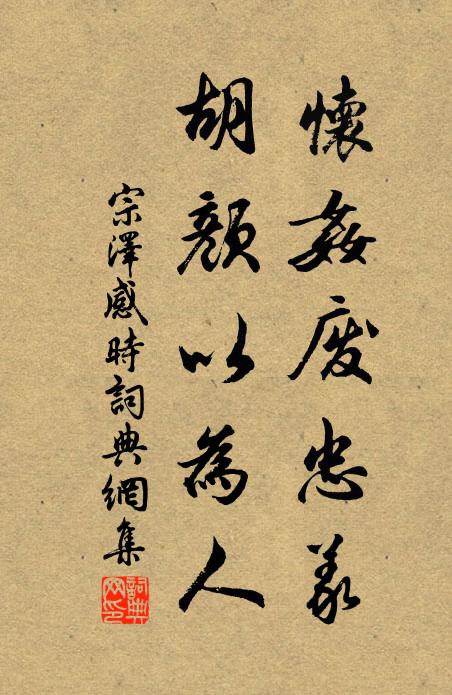 懷姦廢忠義
胡顏以為人
宗澤感時詞典網集
詞典網印